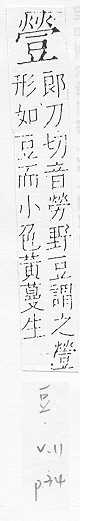 䝁
郎刀切音勞野豆謂之䝁
形如豆而小色黃蔓生
豆.
V.11
p34